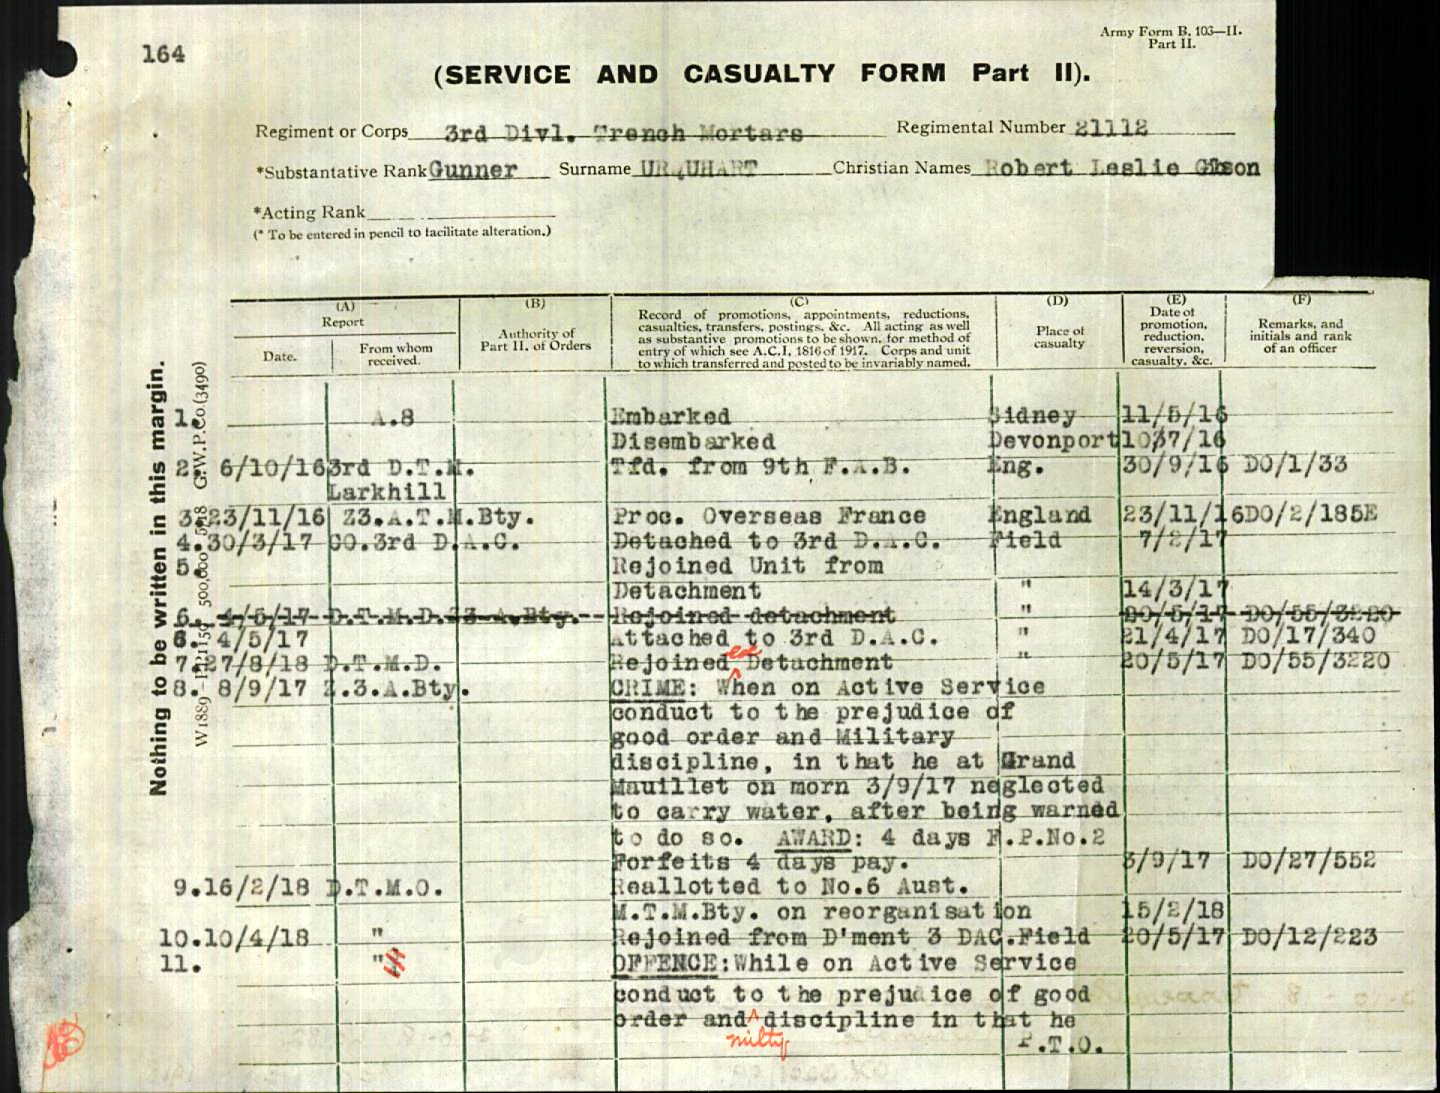 164
Army Form B. 103—II.
Part II.
(SERVICE AND CASUALTY FORM Part II).
Regiment or Corps 3rd Divl. Trench Mortars Regimental Number 21112
*Substantative Rank Gunner Surname URQUHART Christian Names Robert Leslie Gibson
*Acting Rank
(* To be entered in pencil to facilitate alteration.)
Nothing to be written in this margin.
G.W.P.Co.(3490)
(A) (B) (C) (D) (E) (F)
Report
Date.
From whom received.
Authority of Part II. of Orders
Record of promotions, appointments, reductions,
casualties, transfers, postings, &c. All acting as well
as substantive promotions to be shown, for method of
entry of which see A.C.I. 1816 of 1917. Corps and unit
to which transferred and posted to be invariably named.
Place of casualty
Date of promotion, reduction, reversion, casualty, &c.
Remarks, and initials and rank of an officer
1. A.8 Embarked Sidney 11/5/16
Disembarked Devonport 10/7/16
2. 6/10/16 3rd D.T.M. Tfd. from 9th F.A.B. Eng. 30/9/16 DO/1/33
Larkhill
3. 23/11/16 Z3.A.T.M.Bty. Proc. Overseas France England 23/11/16 DO/2/185E
4. 30/3/17 CO.3rd D.A.C. Detached to 3rd D.A.C. Field 7/2/17
5. Rejoined Unit from
Detachment " 14/3/17
6. 4/5/17 D.T.M.D.Z3.A.Bty. Rejoined detachment " 20/5/17 DO/55/3220
6. 4/5/17 Attached to 3rd D.A.C. " 21/4/17 DO/17/340
7. 27/8/18 D.T.M.D. Rejoined ex Detachment " 20/5/17 DO/55/3220
8. 8/9/17 Z.3.A.Bty. CRIME: When on Active Service
conduct to the prejudice of
good order and Military
discipline, in that he at Grand
Mauillet on morn 3/9/17 neglected
to carry water, after being warned
to do so. AWARD: 4 days F.P.No.2
Forfeits 4 days pay. 3/9/17 DO/27/552
9. 16/2/18 D.T.M.O. Reallotted to No.6 Aust.
M.T.M.Bty. on reorganisation 15/2/18
10. 10/4/18 " Rejoined from D'ment 3 DAC. Field 20/5/17 DO/12/223
11. " OFFENCE: While on Active Service
conduct to the prejudice of good
order and milty discipline in that he
P.T.O.